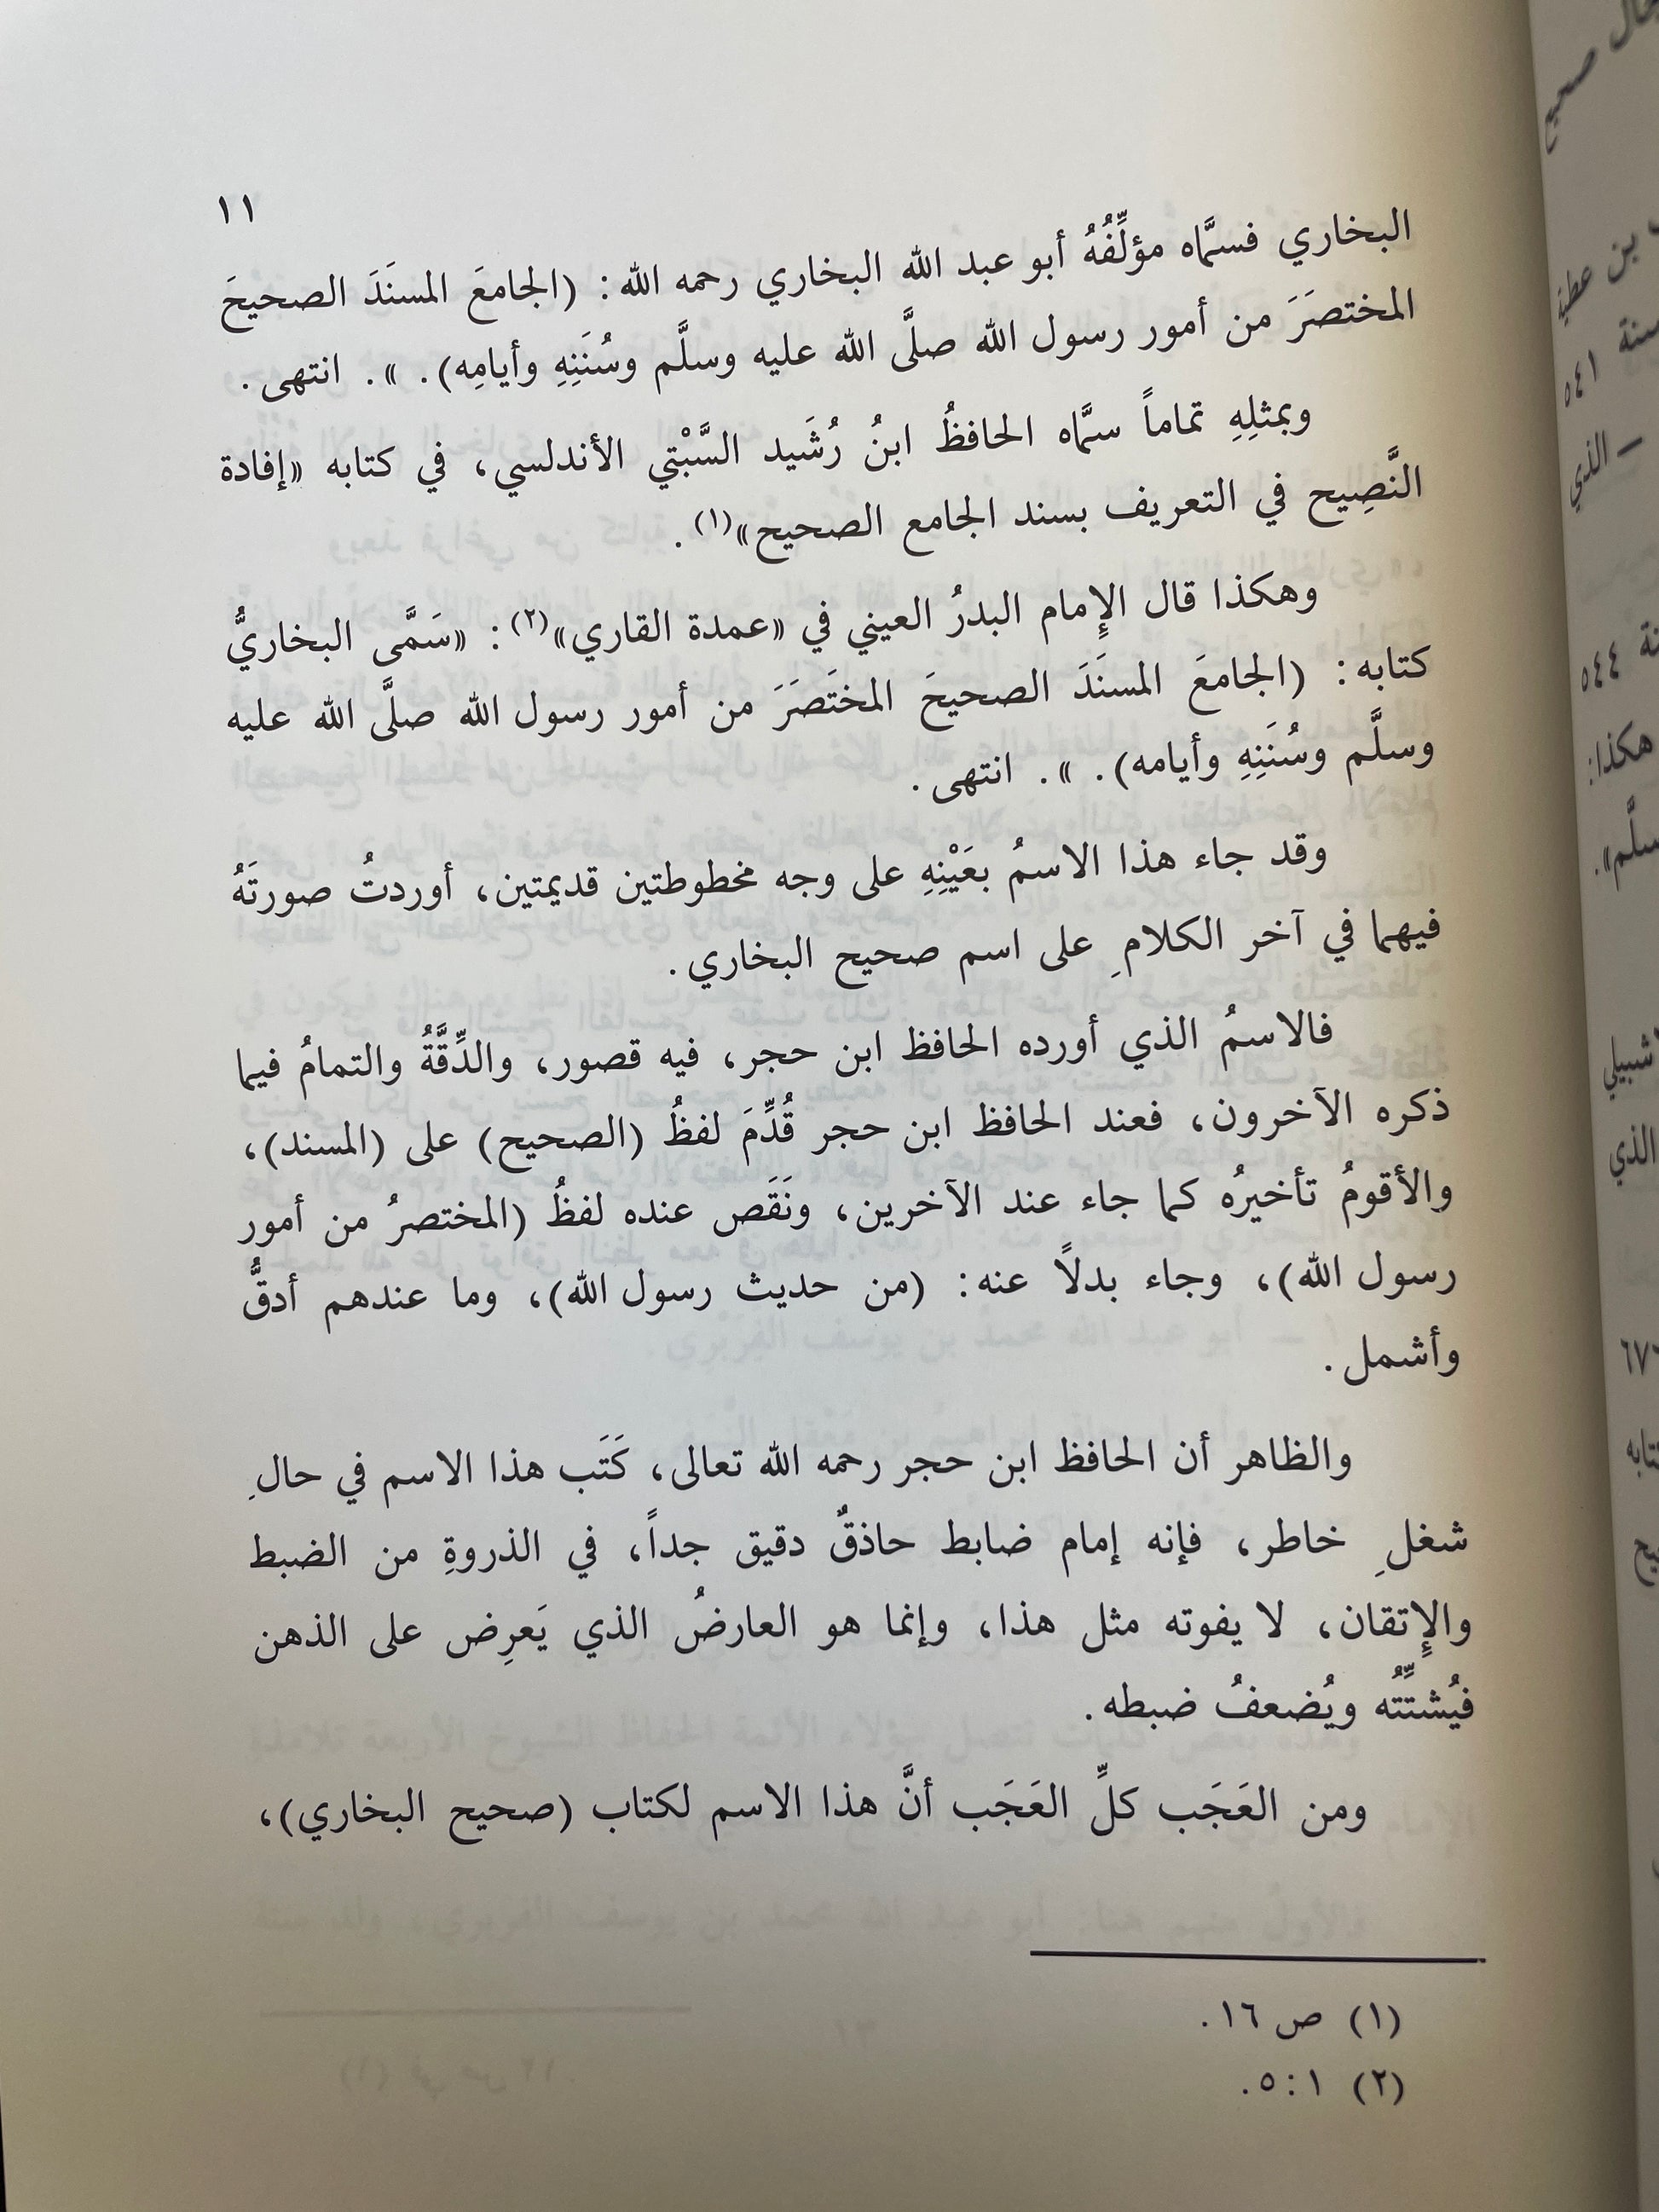 ١١
البخاري فسمَّاه مؤلِّفُهُ أبو عبد الله البخاري رحمه الله: (الجامعَ المسنَدَ الصحيحَ
المختصَرَ من أمور رسول الله صلَّى الله عليه وسلَّم وسُنَنِهِ وأيامِه). ». انتهى.
وبمثلِهِ تماماً سمَّاه الحافظُ ابنُ رُشَيد السَّبْتِي الأندلسي، في كتابه «إفادة
النَّصِيح في التعريف بسند الجامع الصحيح»(١).
وهكذا قال الإِمام البدرُ العيني في «عمدة القاري»(٢): «سَمَّى البخاريُّ
كتابه: (الجامعَ المسنَدَ الصحيحَ المختَصَرَ من أمور رسول الله صلَّى الله عليه
وسلَّم وسُنَنِهِ وأيامه). ». انتهى.
وقد جاء هذا الاسمُ بعَيْنِهِ على وجه مخطوطتين قديمتين، أوردتُ صورتَهُ
فيهما في آخر الكلامِ على اسم صحيح البخاري.
فالاسمُ الذي أورده الحافظ ابن حجر، فيه قصور، والدِّقَّةُ والتمامُ فيما
ذكره الآخرون، فعند الحافظ ابن حجر قُدِّمَ لفظُ (الصحيح) على (المسند)،
والأقومُ تأخيرُه كما جاء عند الآخرين، ونَقَص عنده لفظُ (المختصرُ من أمور
رسول الله)، وجاء بدلاً عنه: (من حديث رسول الله)، وما عندهم أدقُّ
وأشمل.
والظاهر أن الحافظ ابن حجر رحمه الله تعالى، كَتَب هذا الاسم في حالِ
شغلِ خاطر، فإنه إمام ضابط حاذقٌ دقيق جداً، في الذروةِ من الضبط
والإِتقان، لا يفوته مثل هذا، وإنما هو العارضُ الذي يَعرِض على الذهن
فيُشتِّتُه ويُضعفُ ضبطه.
ومن العَجَب كلِّ العَجَب أنَّ هذا الاسم لكتاب (صحيح البخاري)،
(١) ص ١٦.
(٢) ١:٥.
صحيح
بن عطية
سنة ٥٤١
– الذي
٥٤٤
هكذا:
الذي